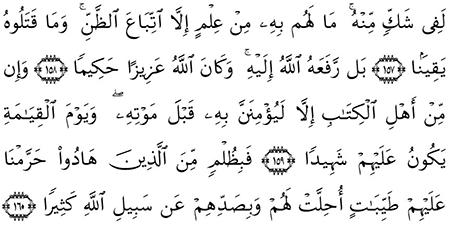 لَفِى شَكٍّ مِّنْهُ ۚ مَا لَهُم بِهِۦ مِنْ عِلْمٍ إِلَّا ٱتِّبَاعَ ٱلظَّنِّ ۚ وَمَا قَتَلُوهُ
يَقِينًۢا ﴿١٥٧﴾ بَل رَّفَعَهُ ٱللَّهُ إِلَيْهِ ۚ وَكَانَ ٱللَّهُ عَزِيزًا حَكِيمًا ﴿١٥٨﴾ وَإِن
مِّنْ أَهْلِ ٱلْكِتَـٰبِ إِلَّا لَيُؤْمِنَنَّ بِهِۦ قَبْلَ مَوْتِهِۦ ۖ وَيَوْمَ ٱلْقِيَـٰمَةِ
يَكُونُ عَلَيْهِمْ شَهِيدًا ﴿١٥٩﴾ فَبِظُلْمٍ مِّنَ ٱلَّذِينَ هَادُوا۟ حَرَّمْنَا
عَلَيْهِمْ طَيِّبَـٰتٍ أُحِلَّتْ لَهُمْ وَبِصَدِّهِمْ عَن سَبِيلِ ٱللَّهِ كَثِيرًا ﴿١٦٠﴾